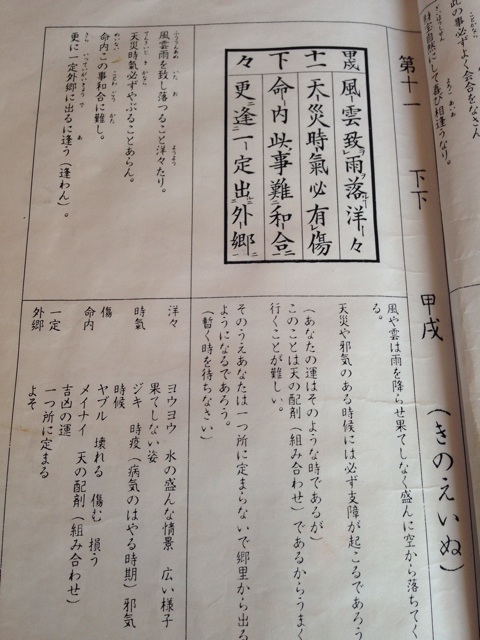 此の事必ずよく会合をなさん
自然にして喜び相逢うなり。
第十一 下下 甲戌 (きのえいぬ)
甲戌 風雲致雨落洋々
十一 天災時氣必有傷
下 命内此事難和合
々 更逢一定出外郷
風雲雨を致し落つること洋々たり。
天災時氣必ずやぶることあらん。
命内この事和合に難し。
更に一定外郷に出るに逢う(逢わん)。
風や雲は雨を降らせ果てしなく盛んに空から落ちてく
る。
天災や邪気のある時候には必ず支障が起こるであろう
(あなたの運はそのような時であるが)
このことは天の配剤(組み合わせ)であるからうまく
行くことが難しい。
そのうえあなたは一つ所に定まらないで郷里から出る
ようになるであろう。
(暫く時を待ちなさい)
洋々 ヨウヨウ 水の盛んな情景 広い様子
果てしない姿
時氣 ジキ 時疫(病気のはやる時期)邪気
時候
傷 ヤブル 壊れる 傷む 損う
命内 メイナイ 天の配剤(組み合わせ)
吉凶の運
一定 一つ所に定まる
外郷 よそ